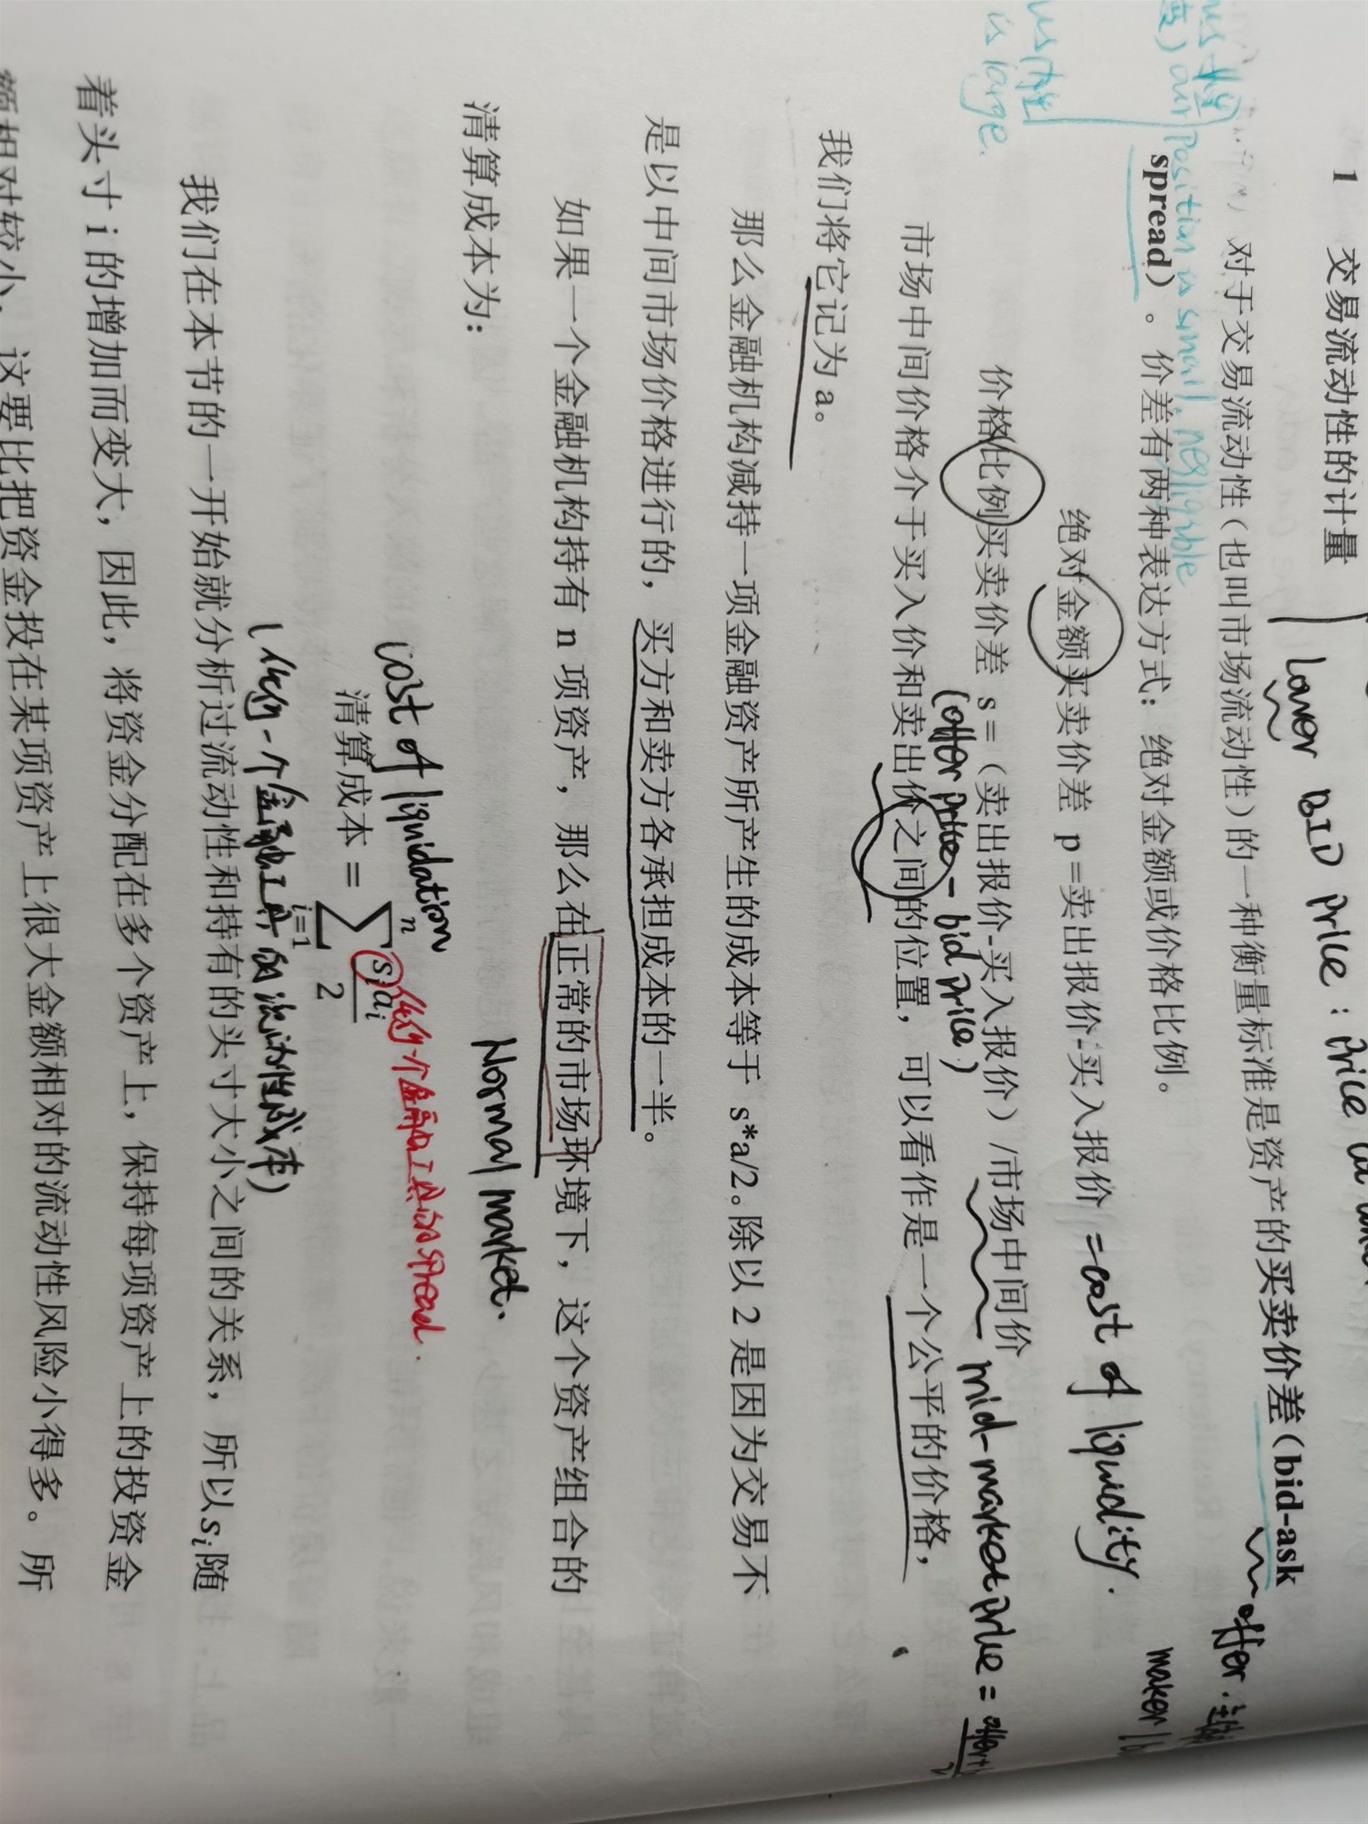 1 交易流动性的计量
Lower BID Price : Price
对于交易流动性（也叫市场流动性）的一种衡量标准是资产的买卖价差（bid-ask
offer.
our Position is small, negligible
spread）。价差有两种表达方式：绝对金额或价格比例。
maker
绝对金额买卖价差 p=卖出报价-买入报价 = cost of liquidity.
is large.
价格比例买卖价差 s=（卖出报价-买入报价）/市场中间价
(offer price - bid price)
mid-market price =
市场中间价格介于买入价和卖出价之间的位置，可以看作是一个公平的价格，
我们将它记为 a。
那么金融机构减持一项金融资产所产生的成本等于 s*a/2。除以 2 是因为交易不
是以中间市场价格进行的，买方和卖方各承担成本的一半。
如果一个金融机构持有 n 项资产，那么在正常的市场环境下，这个资产组合的
Normal market.
清算成本为：
cost of liquidation
清算成本 = ∑_{i=1}^{n} s_i a_i / 2
任何一个金融工具的 spread.
(任何一个金融工具的流动性成本)
我们在本节的一开始就分析过流动性和持有的头寸大小之间的关系，所以s_i随
着头寸 i 的增加而变大，因此，将资金分配在多个资产上，保持每项资产上的投资金
额相对较小，这要比把资金投在某项资产上很大金额相对的流动性风险小得多。所